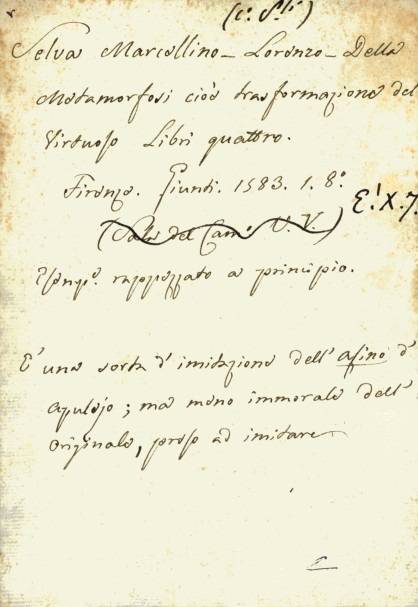 Selva Marcellino - Lorenzo - Della
Metamorfosi cioè trasformazione del
Virtuoso Libri quattro.
Firenze. Giunti. 1583. 1. 8º.
E! X. 7.
(Sala del Cam.º U. V.)
Esemp.º rappezzato a principio.
E' una sorta d' imitazione dell' asino d'
Apulejo; ma meno immorale dell'
Originale, preso ad imitare